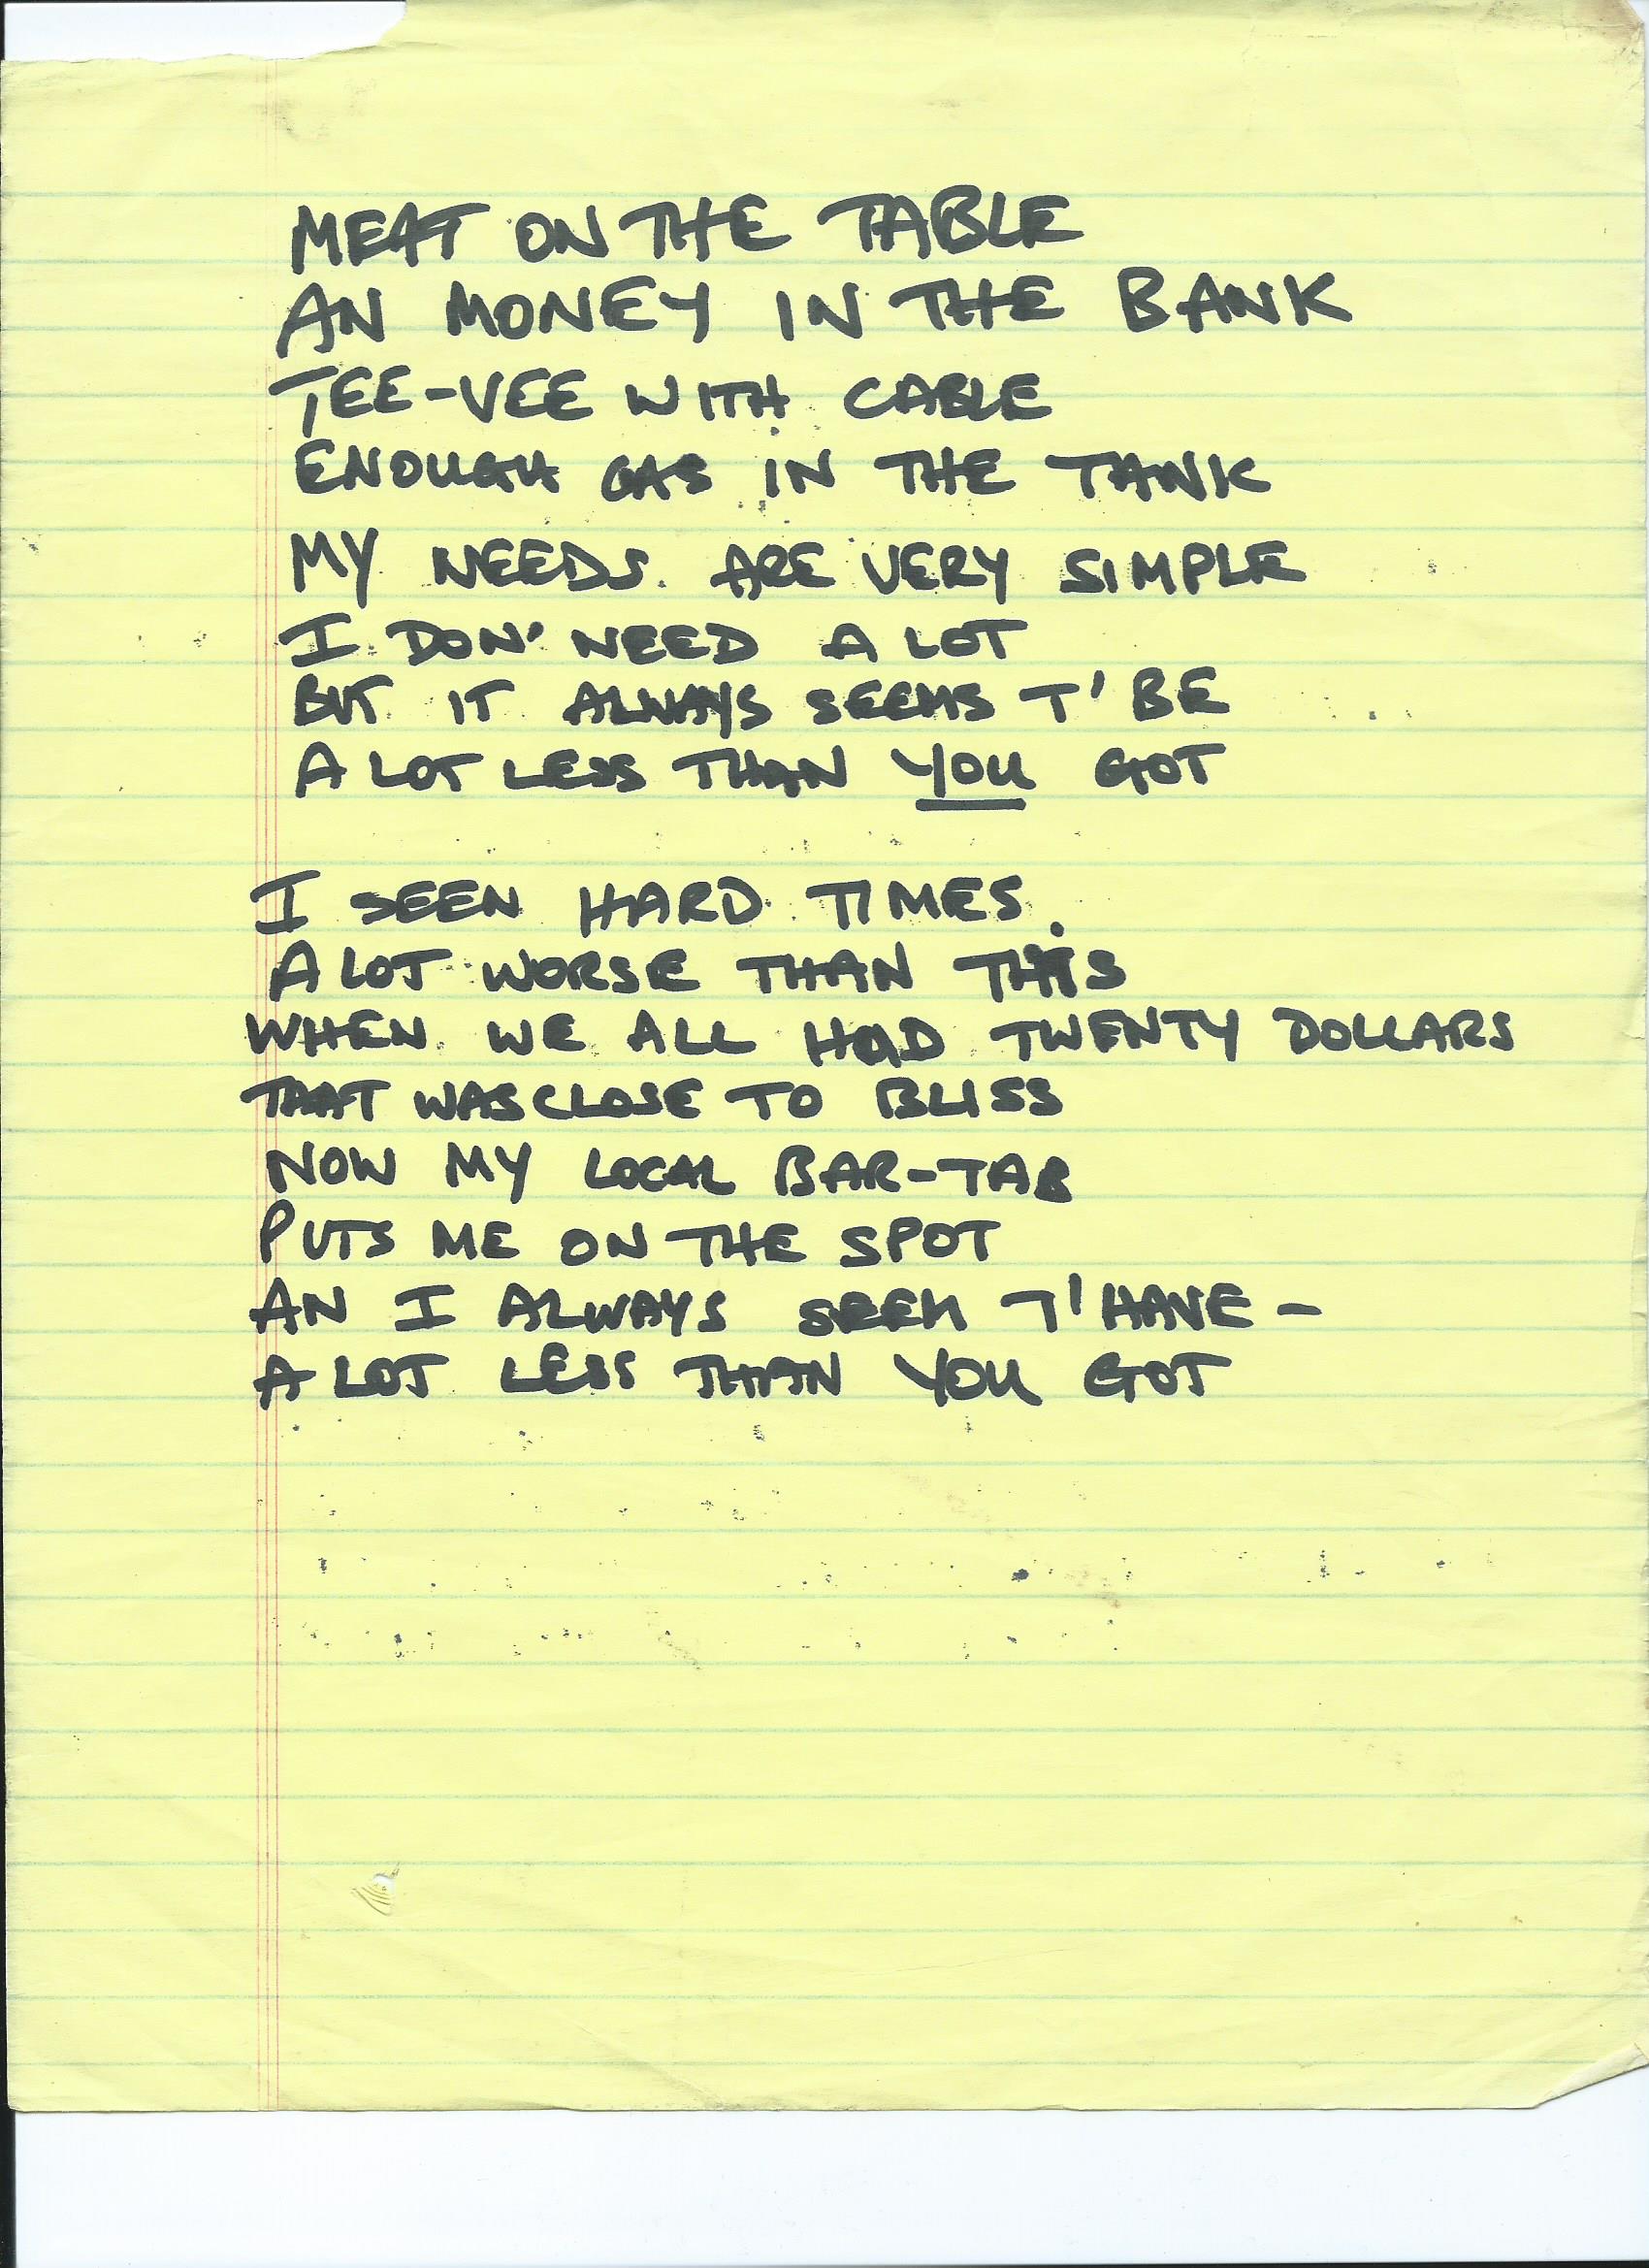 MEAT ON THE TABLE
AN MONEY IN THE BANK
TEE-VEE WITH CABLE
ENOUGH GAS IN THE TANK
MY NEEDS ARE VERY SIMPLE
I DON' NEED A LOT
BUT IT ALWAYS SEEMS T' BE
A LOT LESS THAN YOU GOT
I SEEN HARD TIMES
A LOT WORSE THAN THIS
WHEN WE ALL HAD TWENTY DOLLARS
THAT WAS CLOSE TO BLISS
NOW MY LOCAL BAR-TAB
PUTS ME ON THE SPOT
AN I ALWAYS SEEM T' HAVE -
A LOT LESS THAN YOU GOT